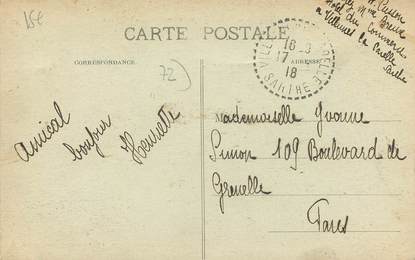 15e
CARTE POSTALE
CORRESPONDANCE
ADRESSE
72
16 - 9
17
18
SARTHE
Hôtel du Commerce
à Villaines la Carelle
Sarthe
Amical
bonjour
Henriette
Mademoiselle Yvonne
Simon 109 Boulevard de
Grenelle
Paris